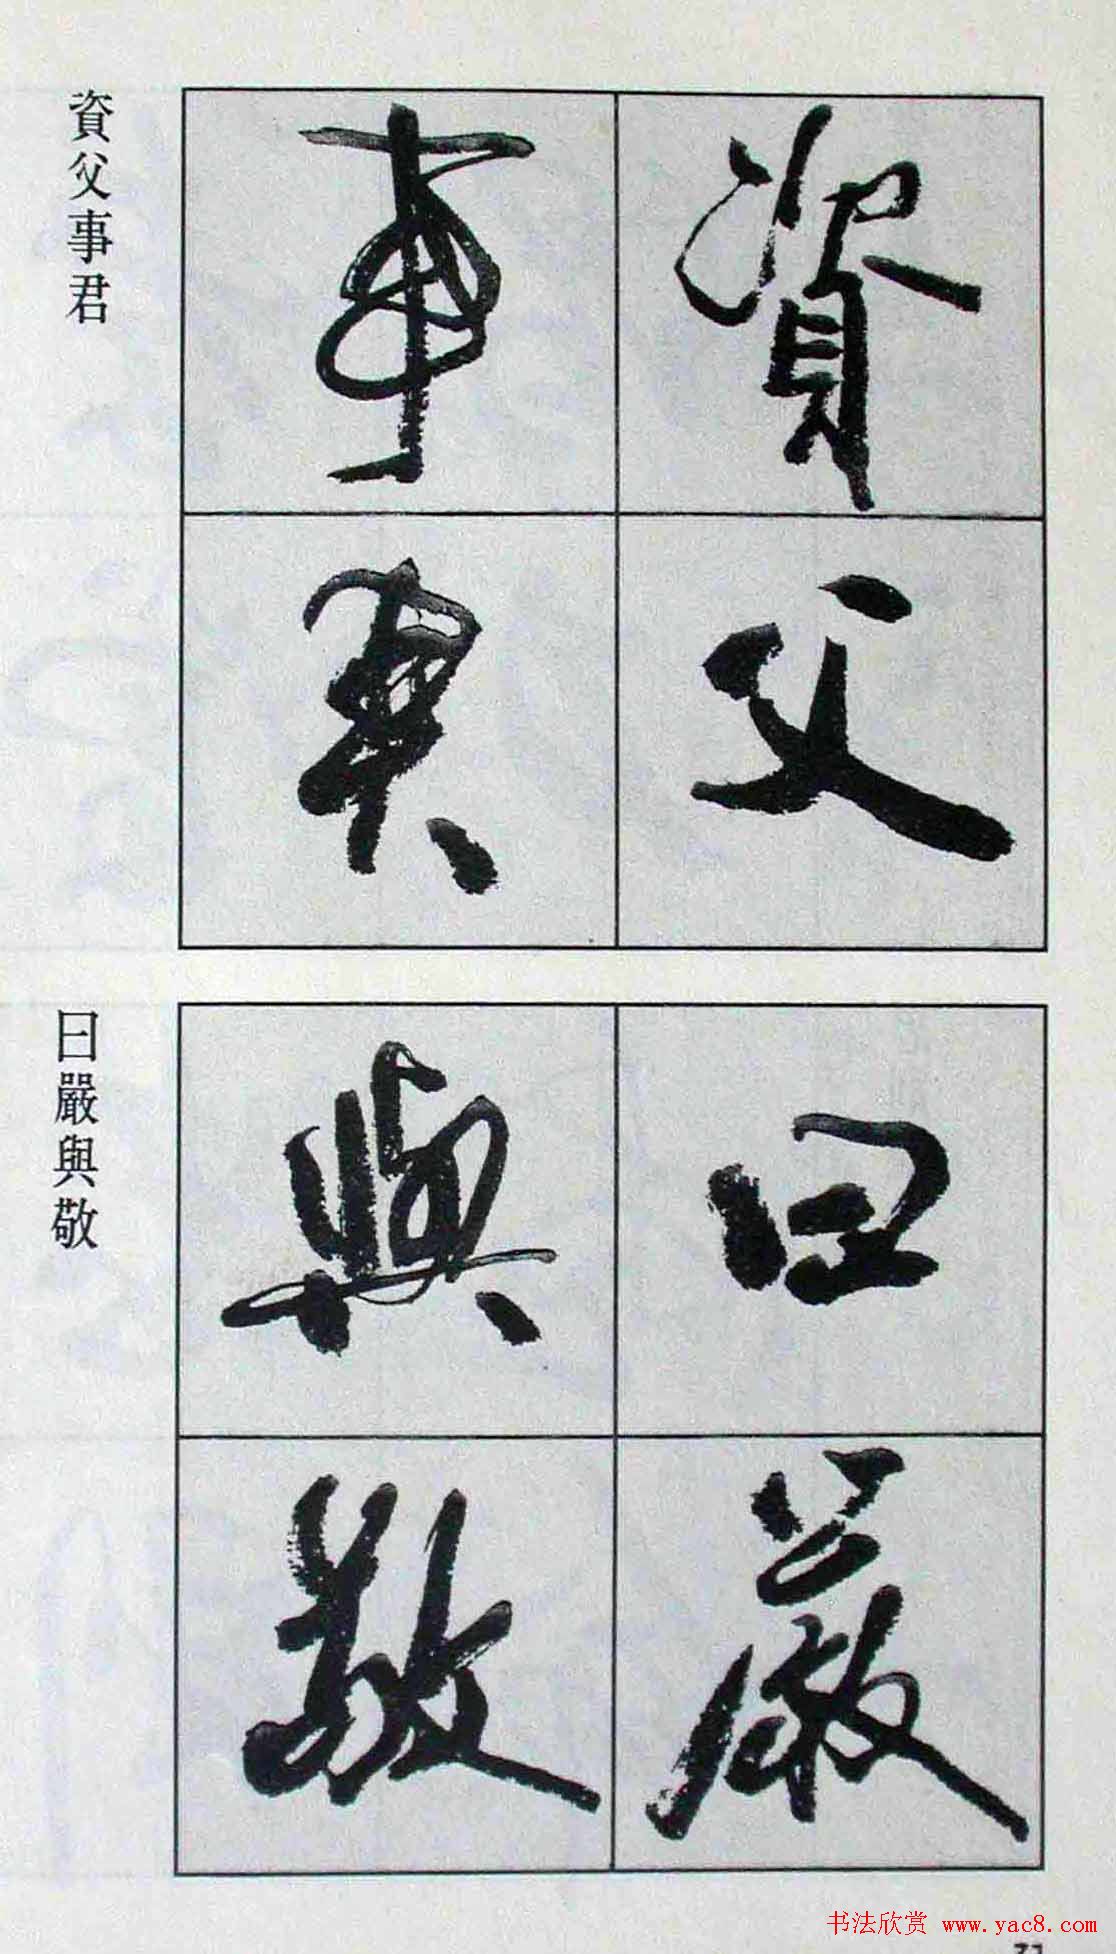 資父
事
資父事君
曰嚴
與敬
曰嚴與敬
书法欣赏 www.yac8.com